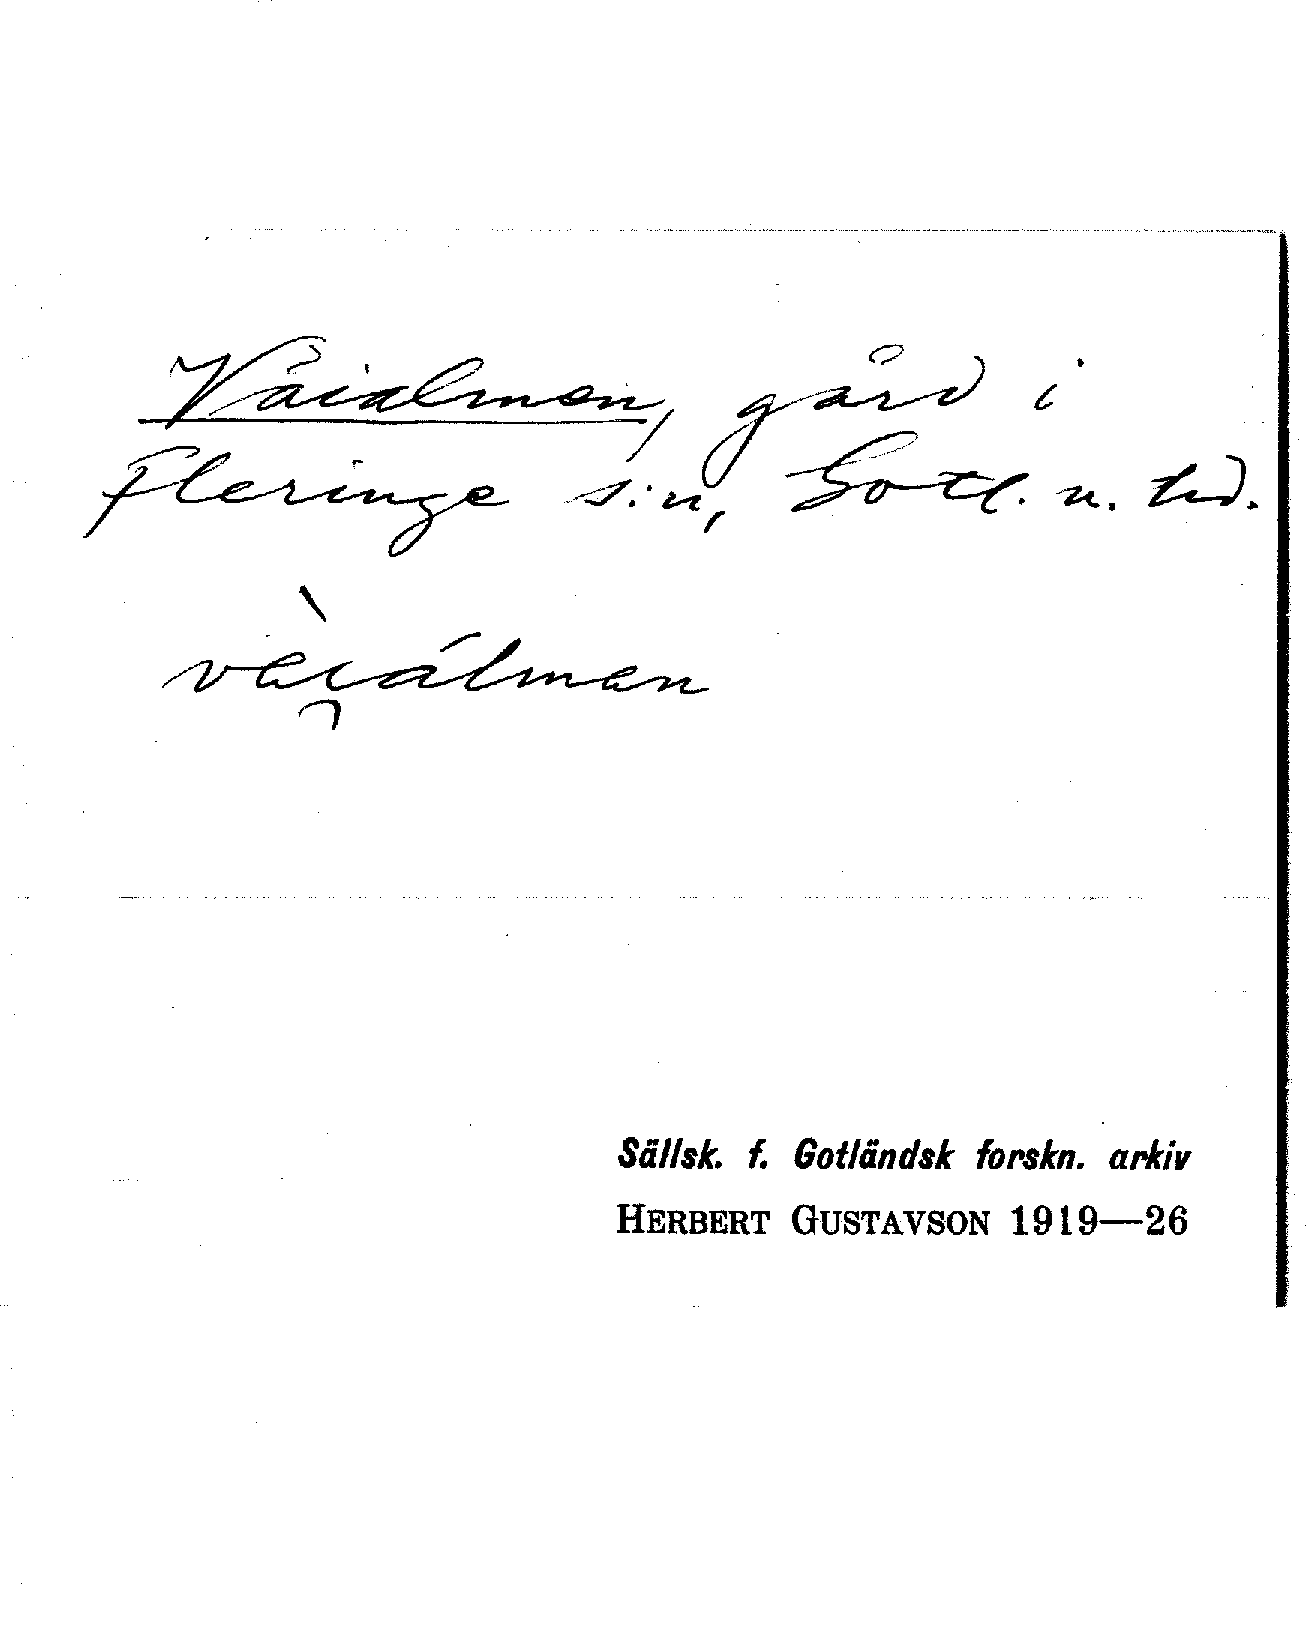 Våialmen, gård i
Fleringe s:n, Gotl. n. hd.
vèi̯álmen
Sällsk. f. Gotländsk forskn. arkiv
HERBERT GUSTAVSON 1919—26